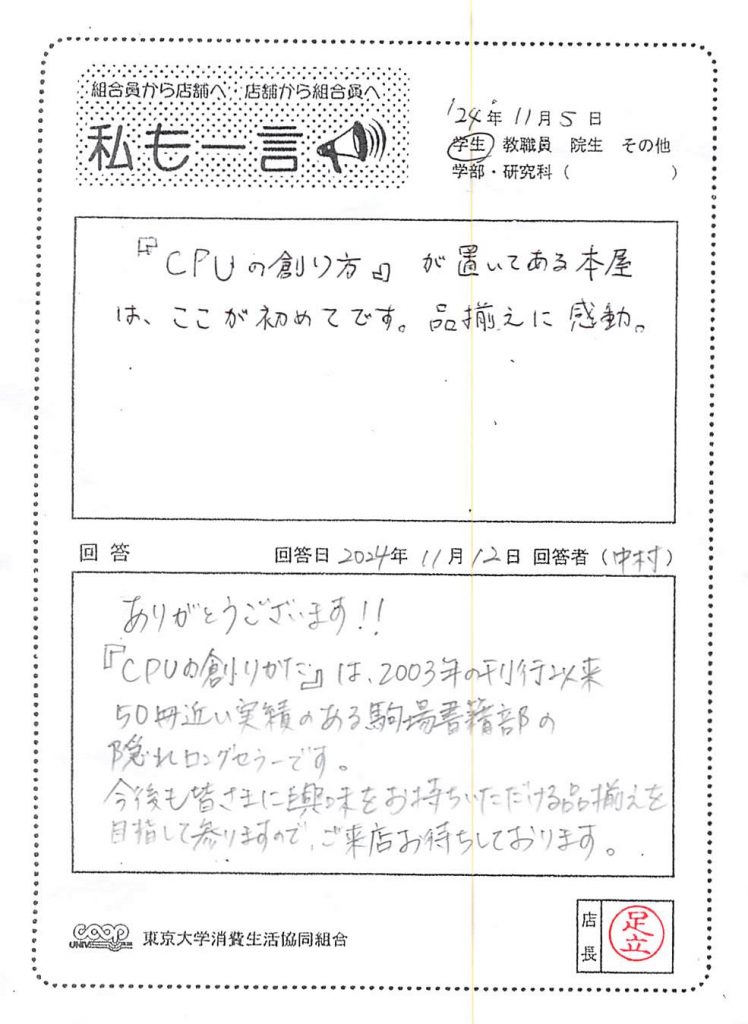 組合員から店舗へ・店舗から組合員へ
私も一言
'24年11月5日
学生 教職員 院生 その他
学部・研究科（ ）
『CPUの創り方』が置いてある本屋
は、ここが初めてです。品揃えに感動。
回答 回答日2024年11月12日 回答者（中村）
ありがとうございます!!
『CPUの創りかた』は、2003年の刊行以来
50冊近い実績のある駒場書籍部の
隠れロングセラーです。
今後も皆さまに興味をお持ちいただける品揃えを
目指して参りますので、ご来店お待ちしております。
UNIV. coop 東京大学消費生活協同組合
店長 足立